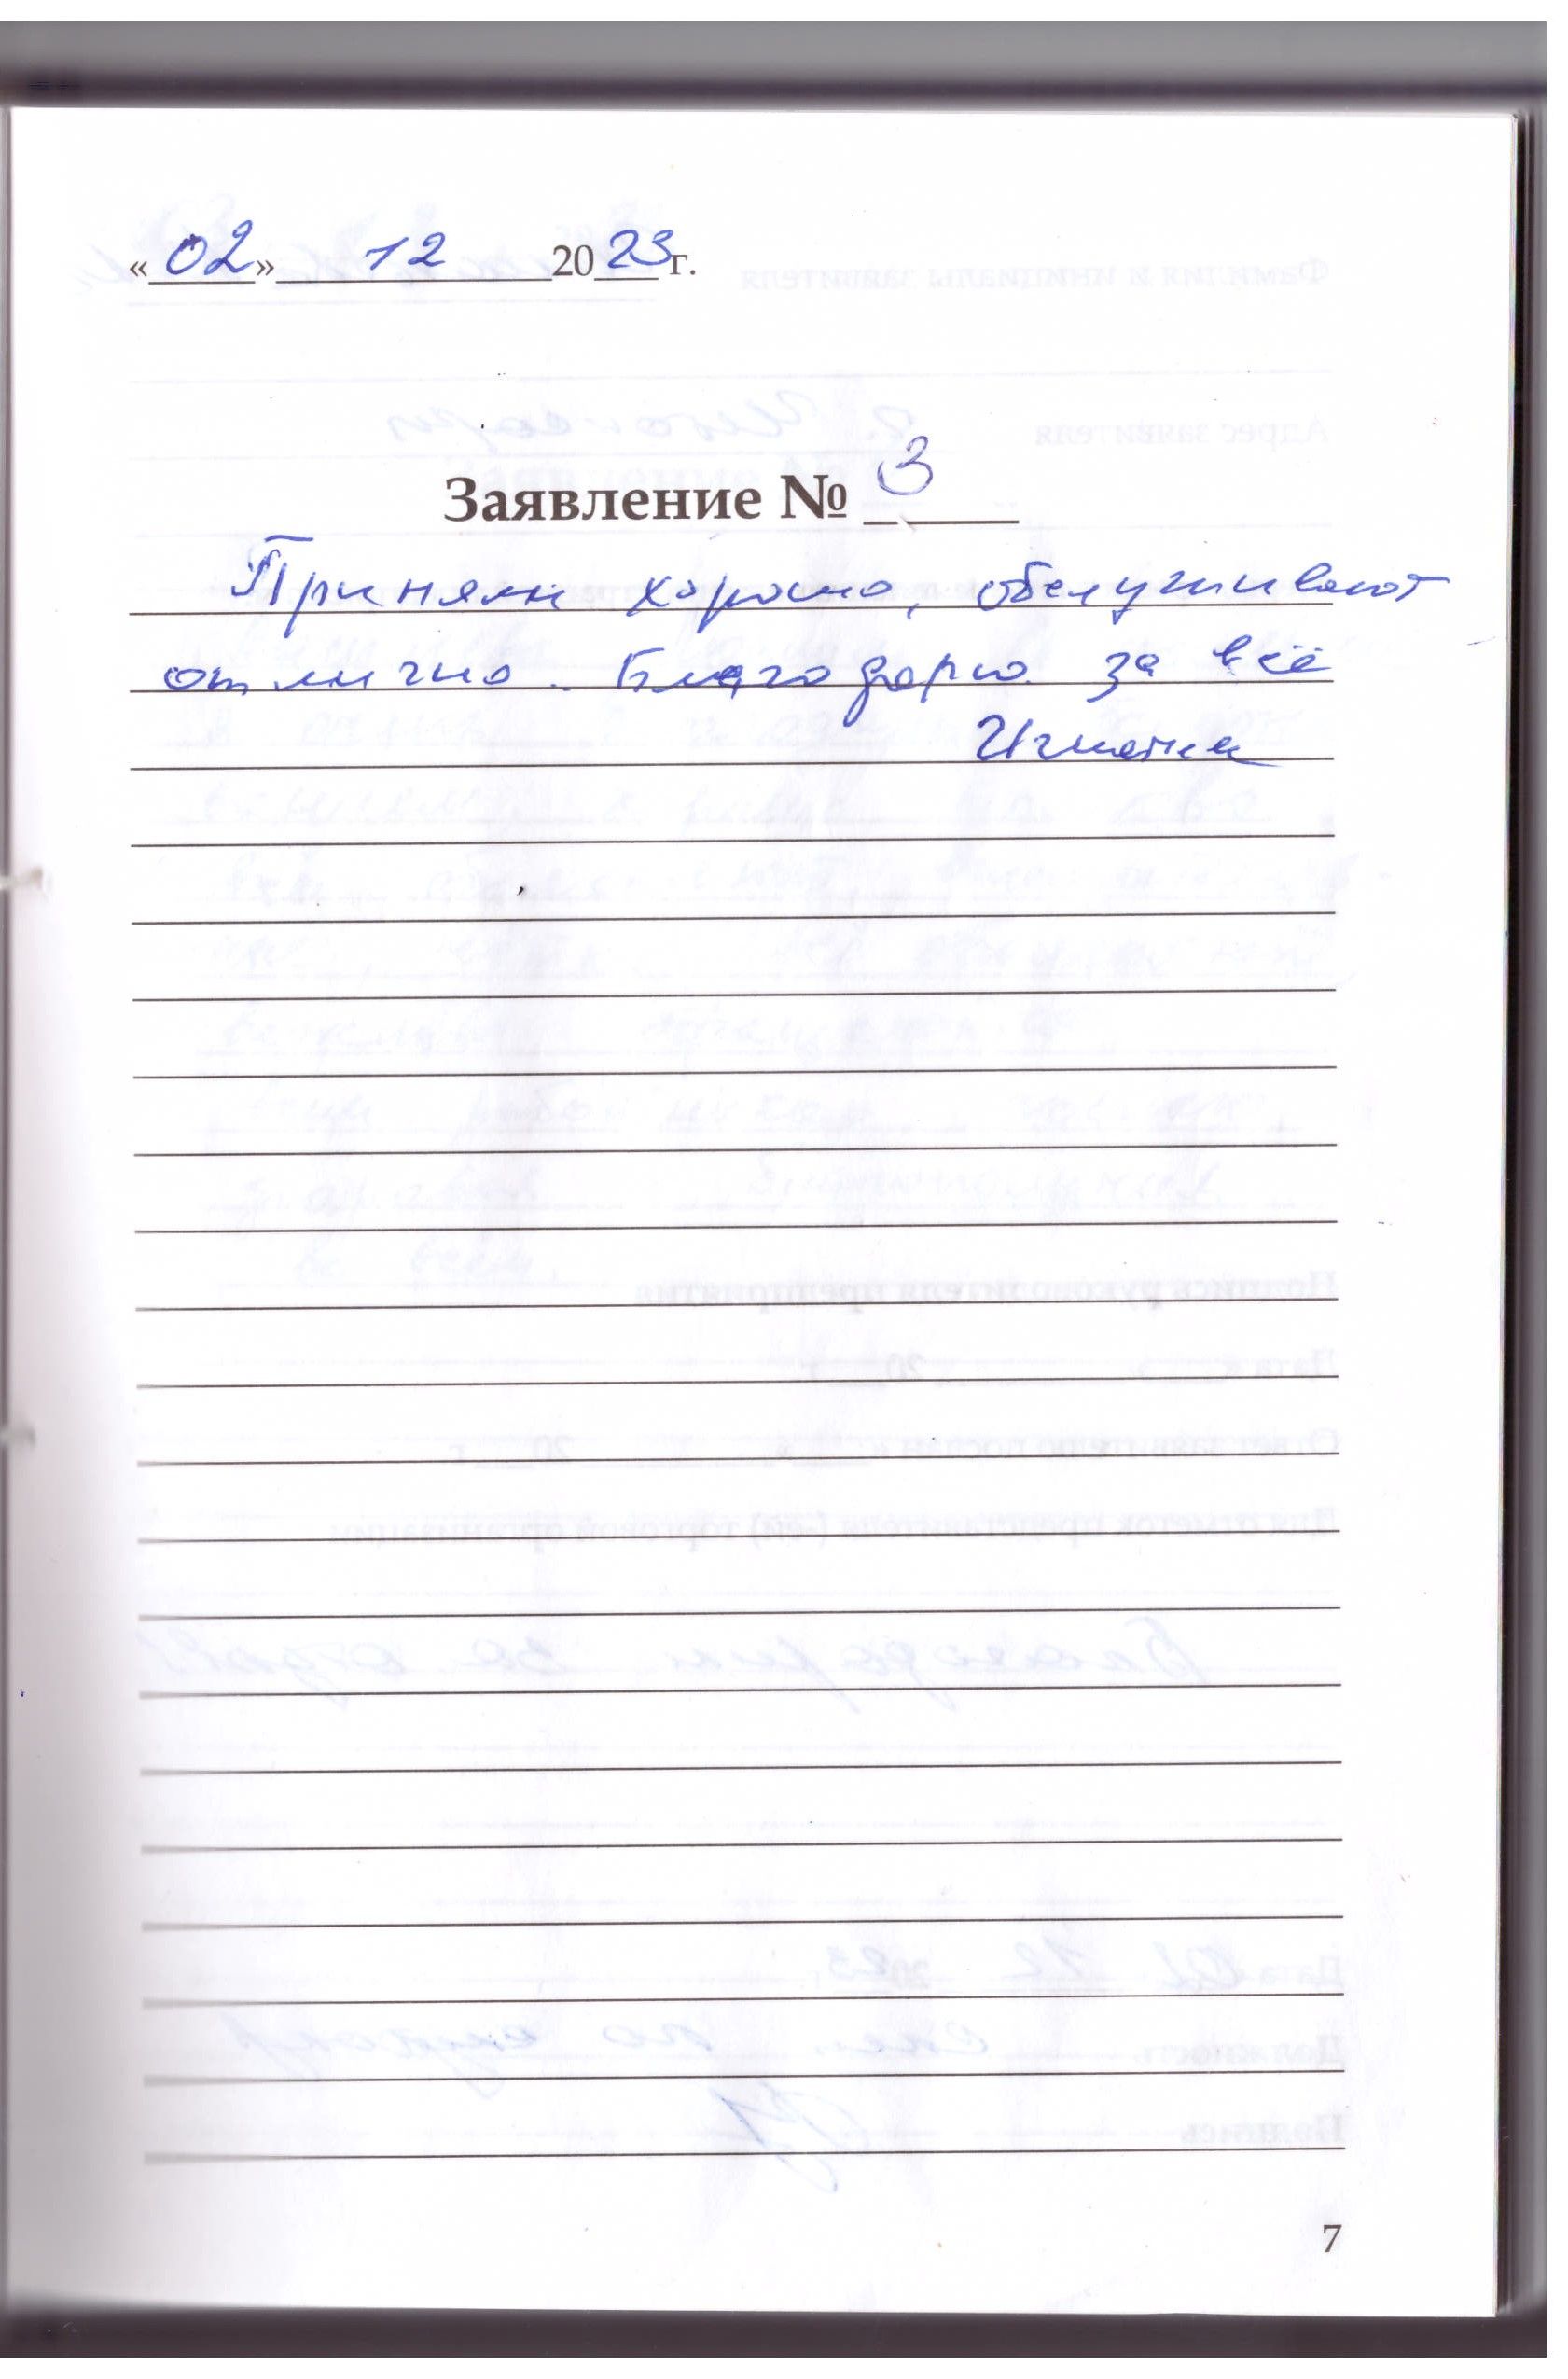 «02» 12 2023 г.
Заявление № 3
Приняли хорошо, обслуживают
отлично. Благодарю за всё
7